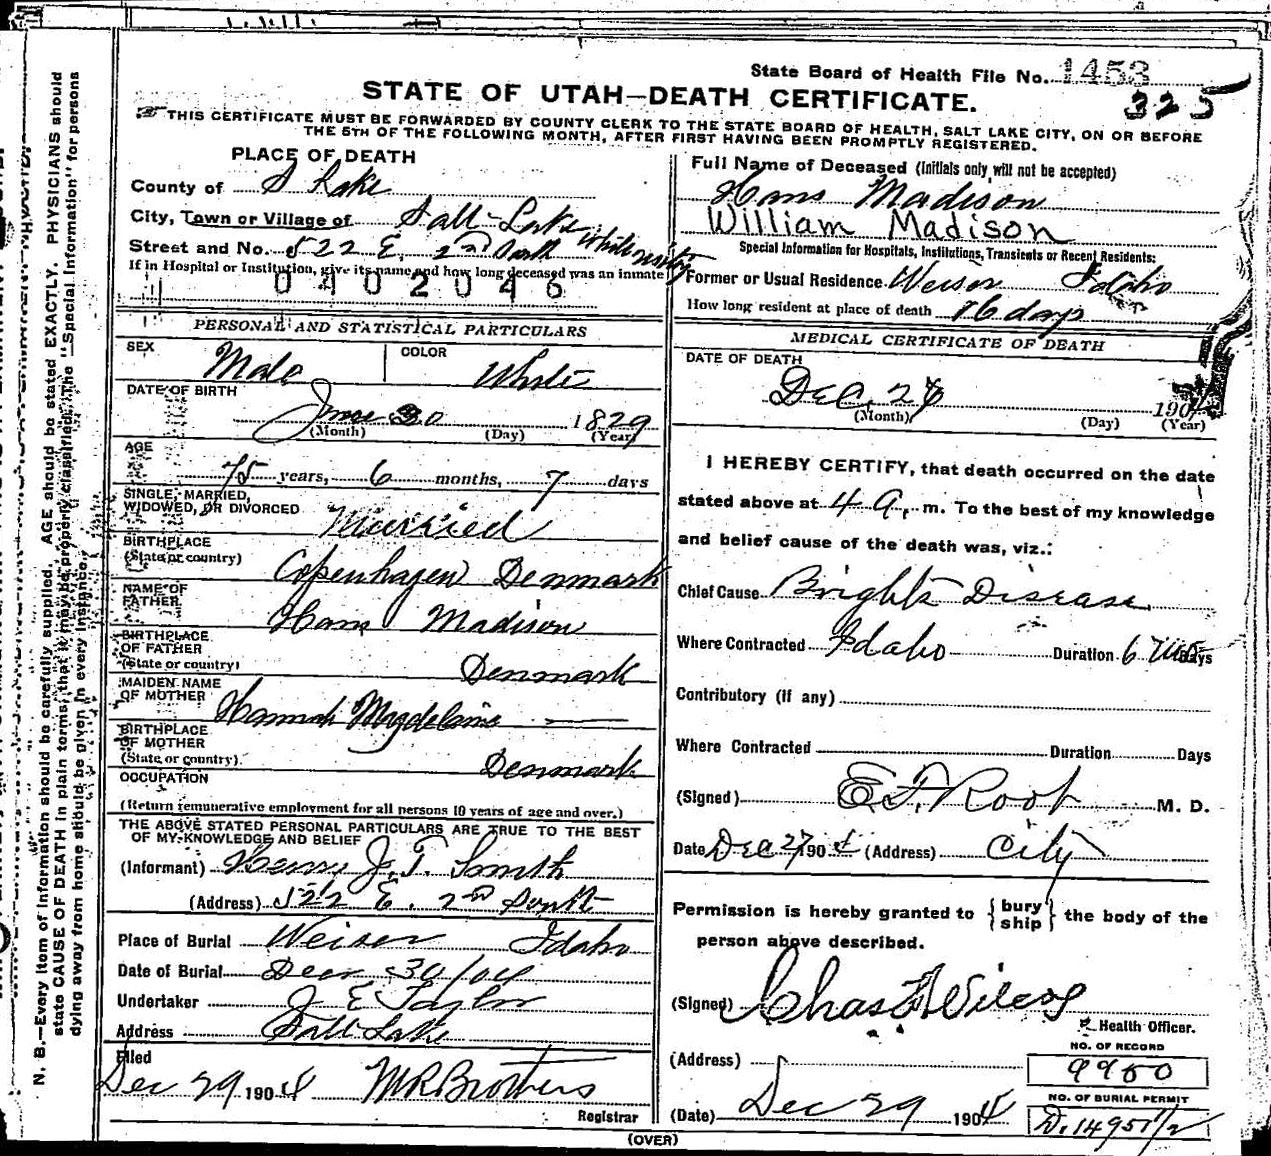 State Board of Health File No. 1453
325
STATE OF UTAH—DEATH CERTIFICATE.
THIS CERTIFICATE MUST BE FORWARDED BY COUNTY CLERK TO THE STATE BOARD OF HEALTH, SALT LAKE CITY, ON OR BEFORE
THE 5TH OF THE FOLLOWING MONTH, AFTER FIRST HAVING BEEN PROMPTLY REGISTERED.
PLACE OF DEATH
County of S Lake
City, Town or Village of Salt Lake
Street and No. 522 E. 2nd South
If in Hospital or Institution, give its name and how long deceased was an inmate
0402046
PERSONAL AND STATISTICAL PARTICULARS
SEX Male COLOR White
DATE OF BIRTH
June 30 1829
(Month) (Day) (Year)
AGE
75 years, 6 months, 7 days
SINGLE, MARRIED,
WIDOWED, OR DIVORCED Married
BIRTHPLACE
(State or country) Copenhagen Denmark
NAME OF
FATHER Hans Madison
BIRTHPLACE
OF FATHER
(State or country) Denmark
MAIDEN NAME
OF MOTHER Hannah Magdelaine
BIRTHPLACE
OF MOTHER
(State or country) Denmark
OCCUPATION
(Return remunerative employment for all persons 10 years of age and over.)
THE ABOVE STATED PERSONAL PARTICULARS ARE TRUE TO THE BEST
OF MY KNOWLEDGE AND BELIEF
(Informant) J. T. Smith
(Address) 522 E. 2nd South
Place of Burial Weiser Idaho
Date of Burial Dec 30/04
Undertaker J E Taylor
Address Salt Lake
Filed
Dec 29 1904 M R Brothers
Registrar
Full Name of Deceased (Initials only will not be accepted)
Hans Madison
William Madison
Special Information for Hospitals, Institutions, Transients or Recent Residents:
Former or Usual Residence Weiser Idaho
How long resident at place of death 16 days
MEDICAL CERTIFICATE OF DEATH
DATE OF DEATH
Dec. 1904
(Month) (Day) (Year)
I HEREBY CERTIFY, that death occurred on the date
stated above at 4 a. m. To the best of my knowledge
and belief cause of the death was, viz.:
Chief Cause Brights Disease
Where Contracted Idaho Duration 6 Days
Contributory (If any)
Where Contracted Duration Days
(Signed) E. F. Root M. D.
Date Dec 27 1904 (Address) City
Permission is hereby granted to {bury ship} the body of the
person above described.
(Signed) Chas F Wilcox
Health Officer.
(Address)
NO. OF RECORD
9950
NO. OF BURIAL PERMIT
D. 14951 1/2
(Date) Dec 29 1904
(OVER)
N. B.—Every item of information should be carefully supplied. AGE should be stated EXACTLY. PHYSICIANS should
state CAUSE OF DEATH in plain terms, that it may be properly classified. The "Special Information" for persons
dying away from home should be given in every instance.